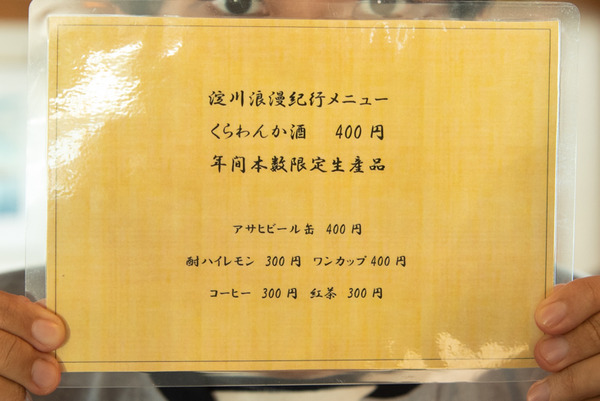 淀川浪漫紀行メニュー
くらわんか酒 400 円
年间本数限定生産品
アサヒビール缶 400 円
酎ハイレモン 300 円 ワンカップ 400 円
コーヒー 300 円 紅茶 300 円